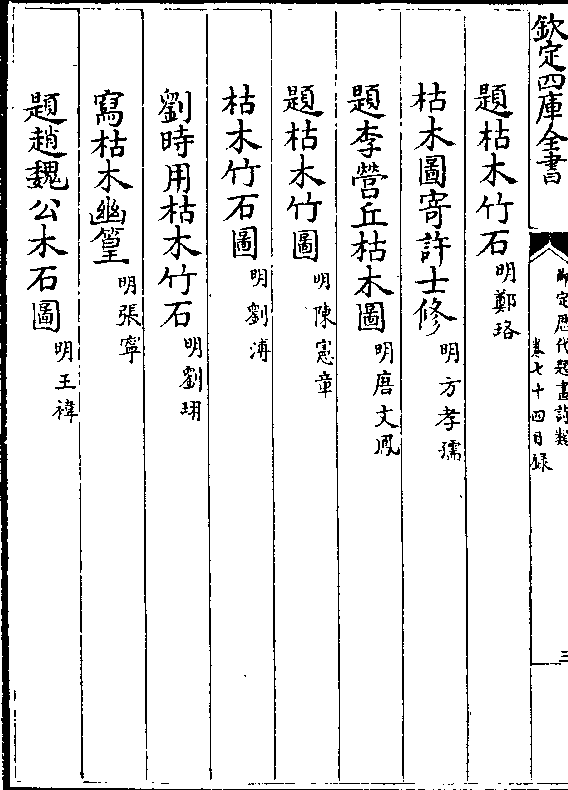 欽定四庫全書
御定歷代題畫詩類
卷七十四目錄
三
題枯木竹石明鄭珞
枯木圖寄許士修明方孝孺
題李營丘枯木圖明唐文鳳
題枯木竹圖明陳憲章
枯木竹石圖明劉溥
劉時用枯木竹石明劉珝
寫枯木幽篁明張寧
題趙魏公木石圖明王褘